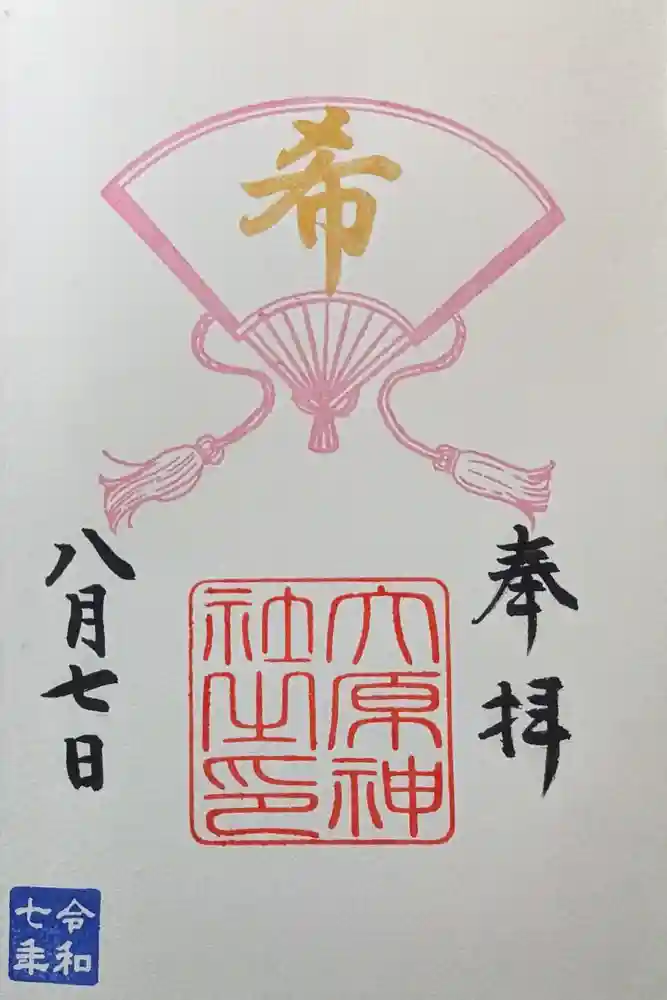 希
奉拝
大原神
社之印
八月七日
令和
七年